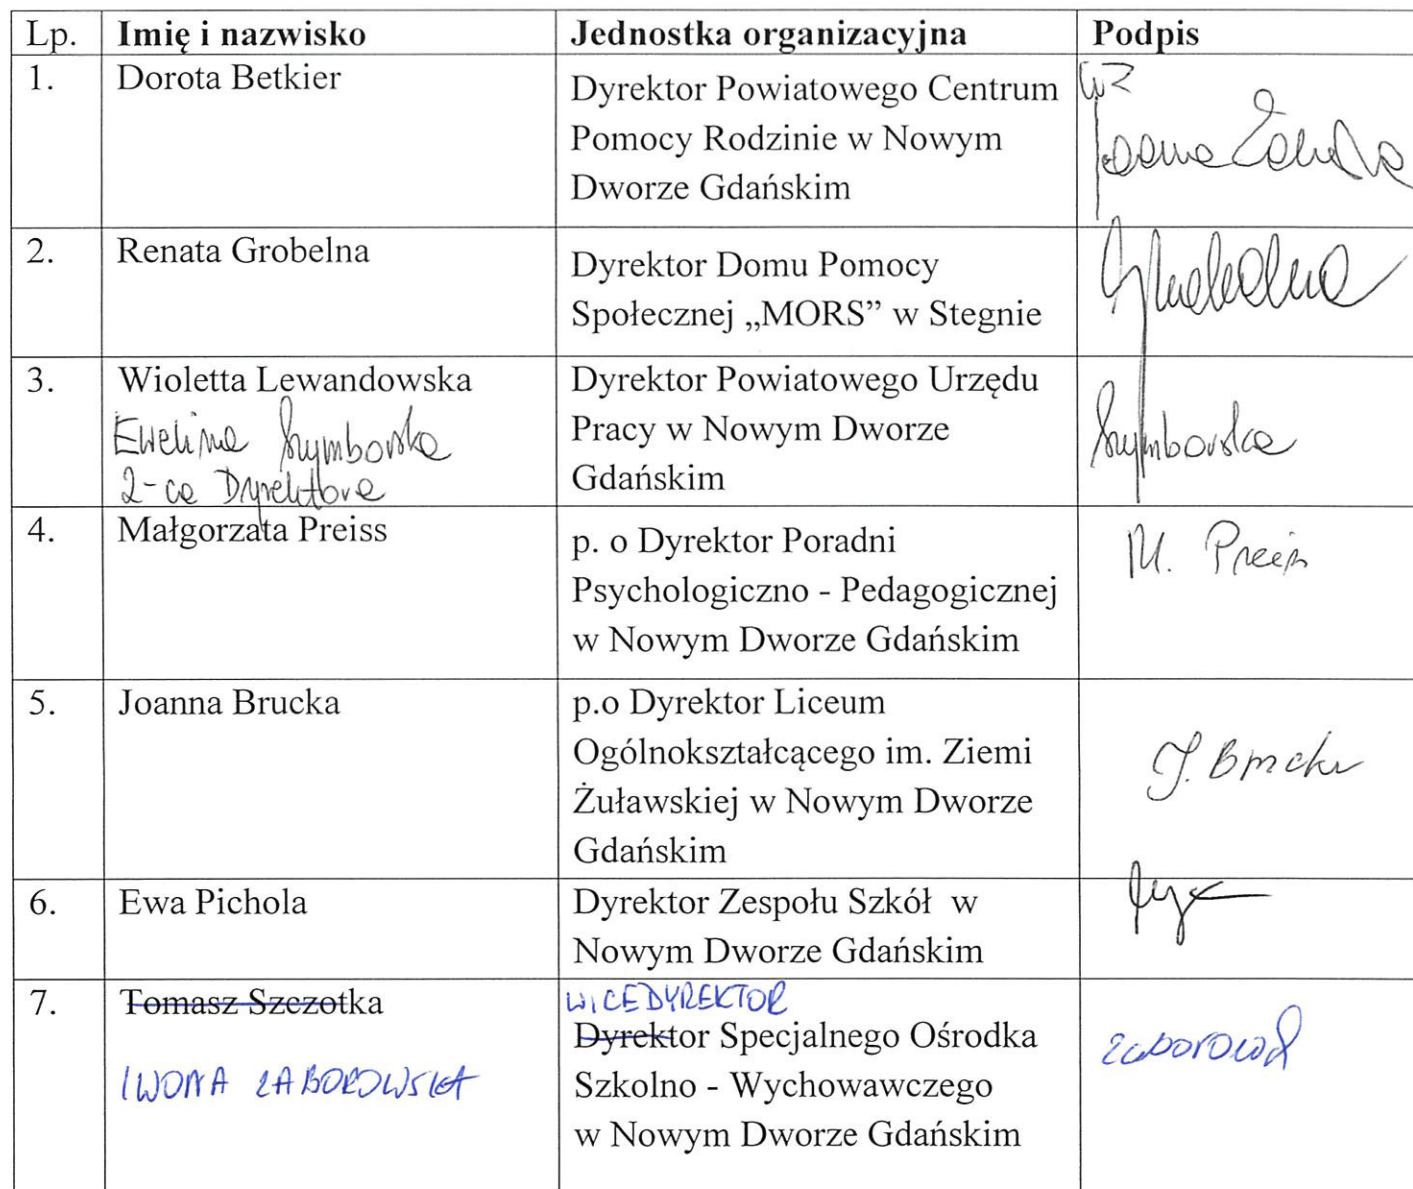 Lp. Imię i nazwisko Jednostka organizacyjna Podpis
1. Dorota Betkier
Dyrektor Powiatowego Centrum
Pomocy Rodzinie w Nowym
Dworze Gdańskim
wz
Joanna
2. Renata Grobelna
Dyrektor Domu Pomocy
Społecznej „MORS” w Stegnie
Grobelna
3. Wioletta Lewandowska
Ewelina Szymborska
Z-ca Dyrektora
Dyrektor Powiatowego Urzędu
Pracy w Nowym Dworze
Gdańskim
Szymborska
4. Małgorzata Preiss
p. o Dyrektor Poradni
Psychologiczno - Pedagogicznej
w Nowym Dworze Gdańskim
M. Preiss
5. Joanna Brucka
p.o Dyrektor Liceum
Ogólnokształcącego im. Ziemi
Żuławskiej w Nowym Dworze
Gdańskim
J. Brucka
6. Ewa Pichola
Dyrektor Zespołu Szkół w
Nowym Dworze Gdańskim
7. Tomasz Szczotka
IWONA ZABOROWSKA
WICEDYREKTOR
Dyrektor Specjalnego Ośrodka
Szkolno - Wychowawczego
w Nowym Dworze Gdańskim